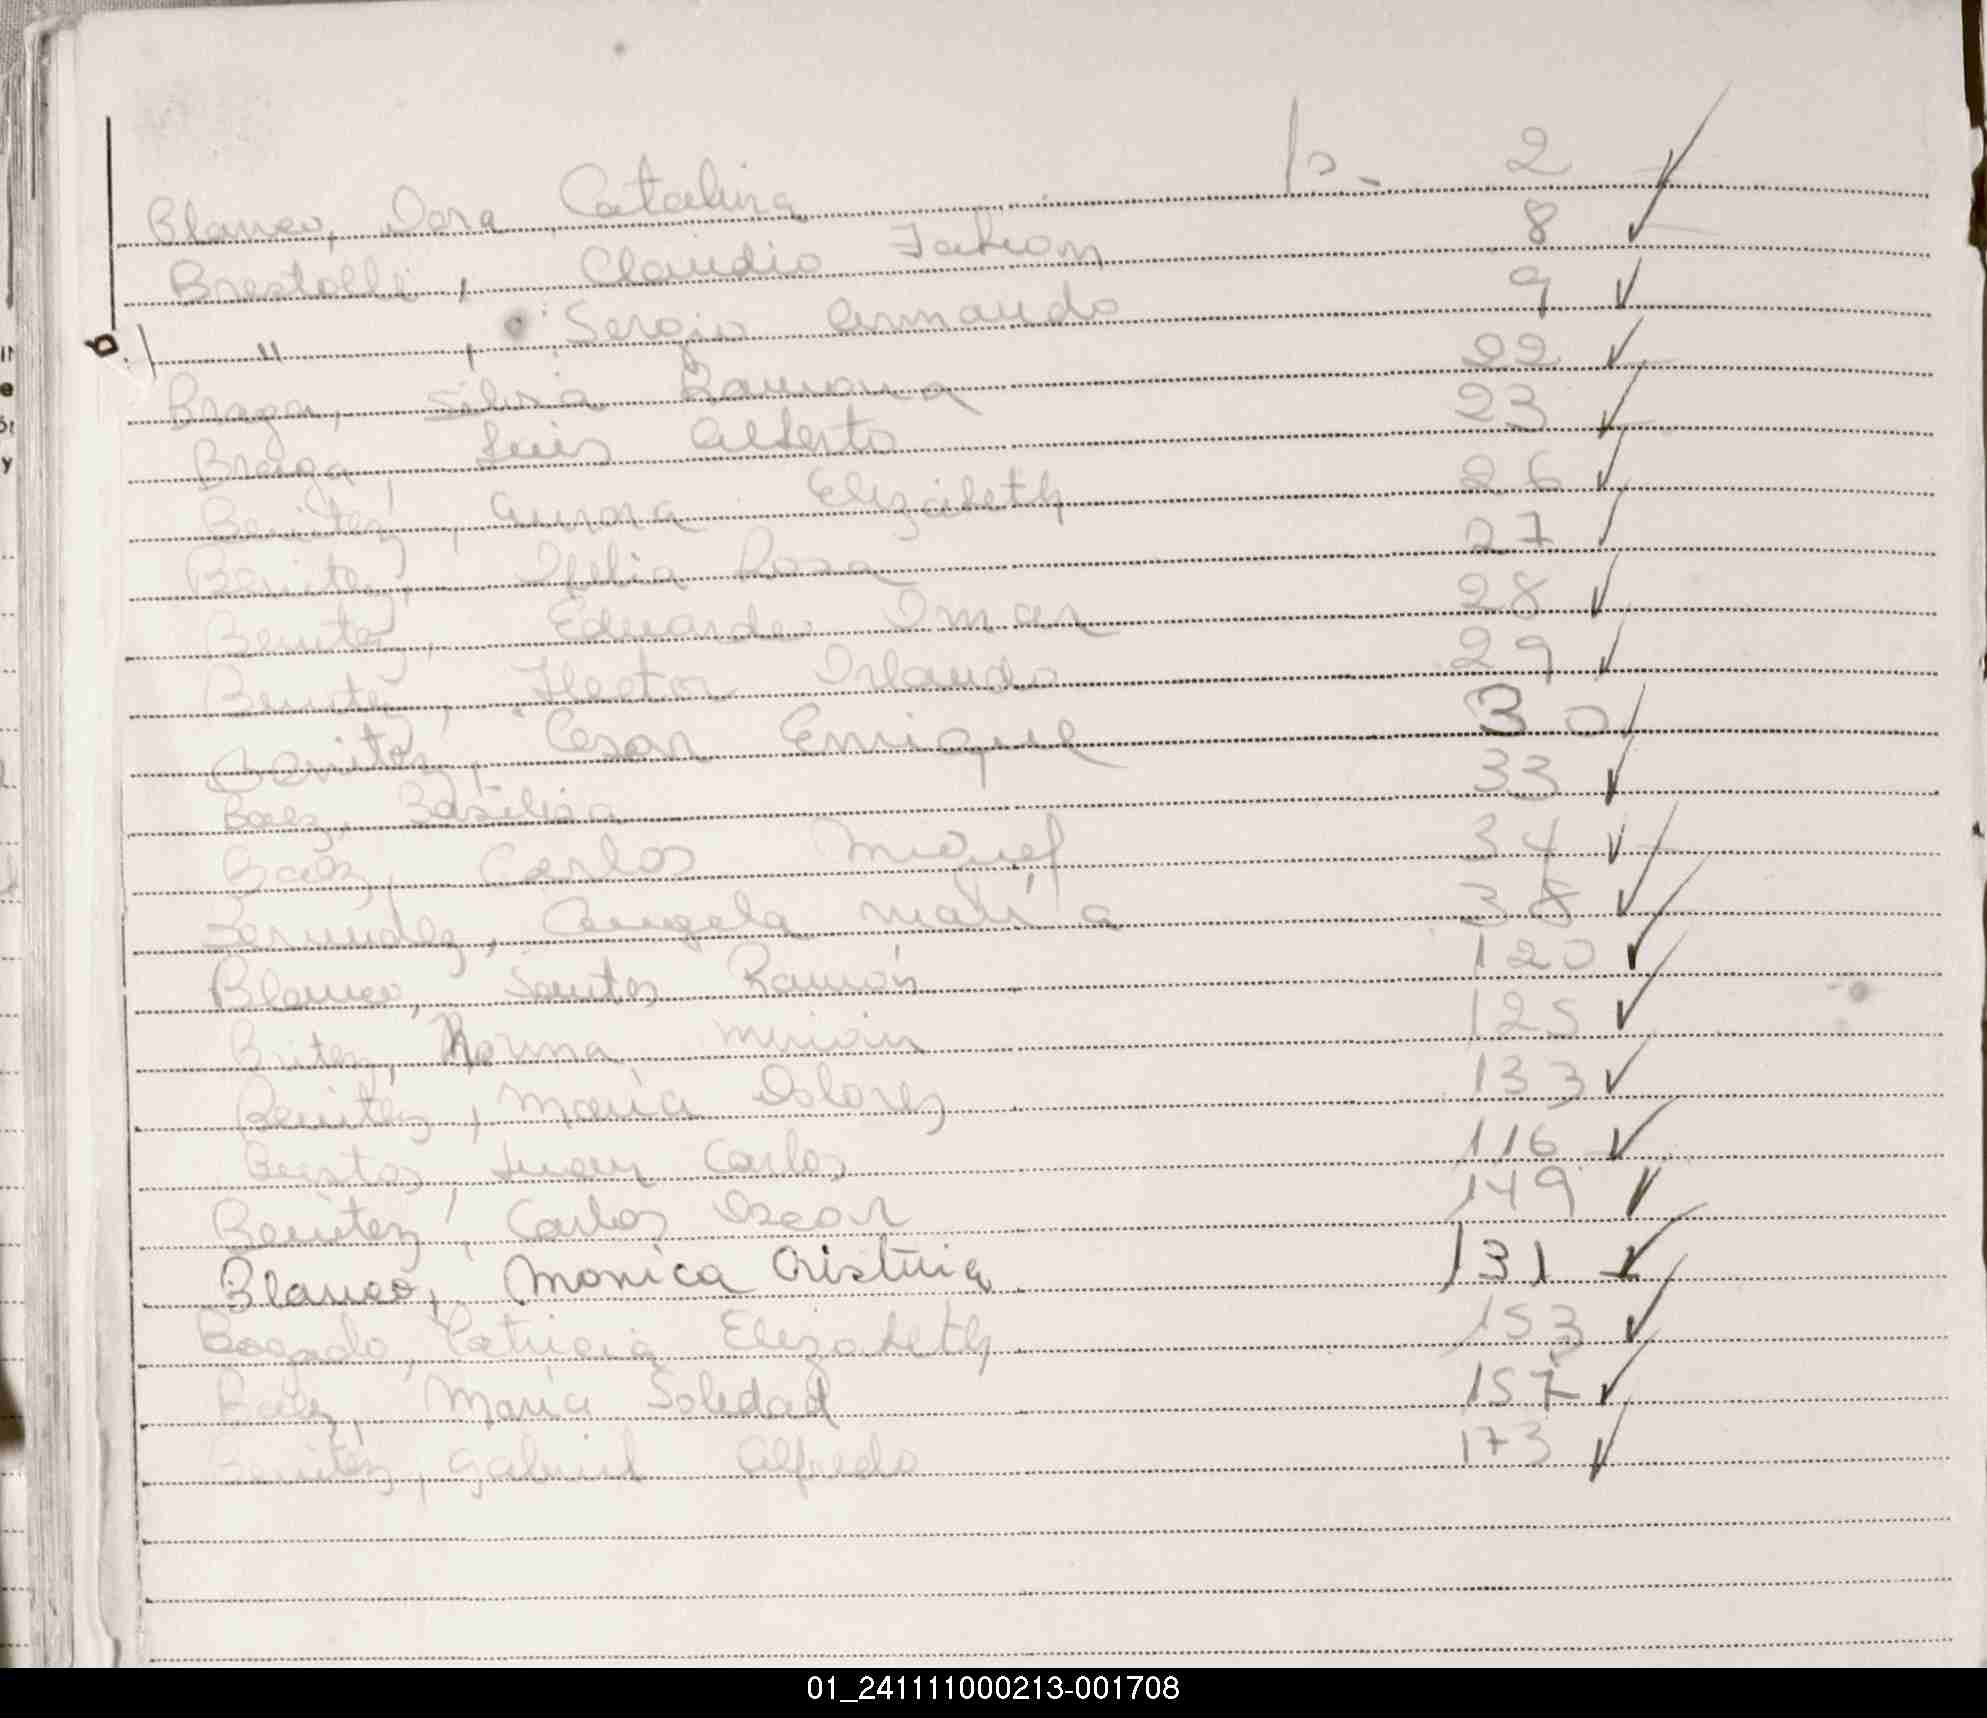 Blanco, Dora Catalina P- 2
Brestolli, Claudio Fabian 8
" , Sergio Armando 9
Braga, Silvia Ramona 22
Braga, Luis Alberto 23
Benitez, Aurora Elizabeth 26
Benitez, Ofelia Rosa 27
Benitez, Eduardo Omar 28
Benitez, Hector Orlando 29
Benitez, Cesar Enrique 30
Baez, Basilisa 33
Baez, Carlos Miguel 34
Bermudez, Angela María 38
Blanco, Santos Ramón 120
Britez, Norma Mirian 125
Benitez, María Dolores 133
Juan Carlos 116
Benitez, Carlos Oscar 149
Blanco, Monica Cristina 131
Bogado, Patricia Elizabeth 153
Baez, María Soledad 157
Benitez, Gabriel Alfredo 173
01_241111000213-001708